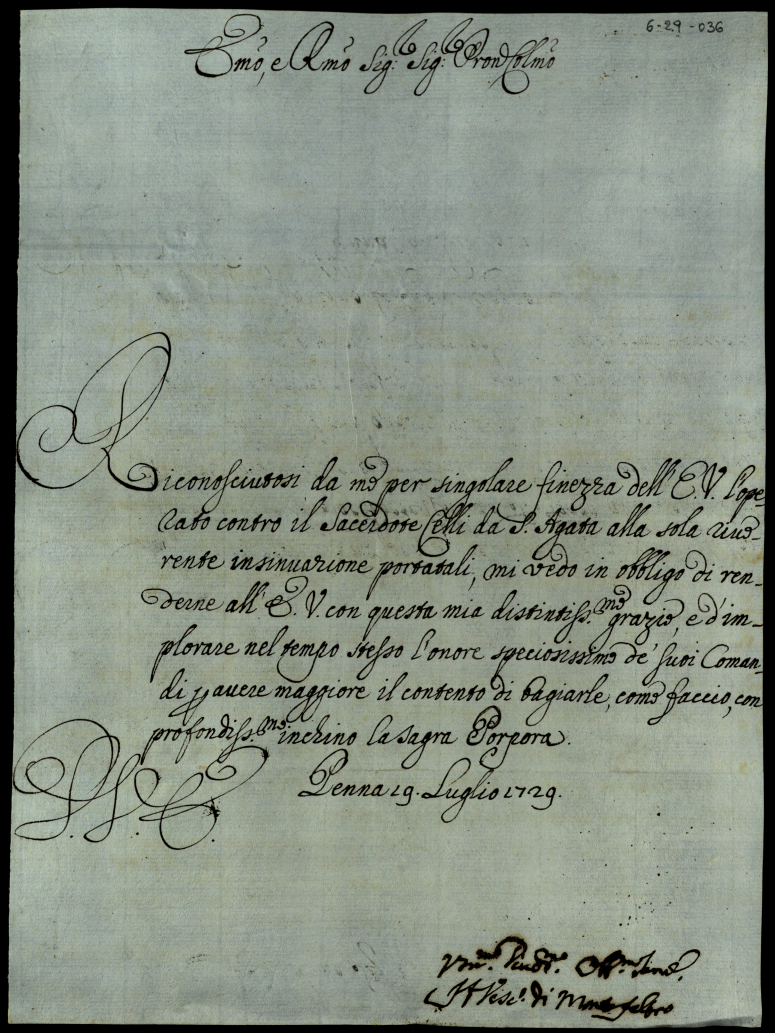 6-29-036
Emo, e Rmo Sig: Sig: Pron Colmo
Riconosciutosi da me per singolare finezza dell' E. V. l'ope-
rato contro il Sacerdote Celli da S. Agata alla sola rive-
rente insinuazione portatali, mi vedo in obbligo di ren-
derne all' E. V. con questa mia distintiss.me grazie, e d'im-
plorare nel tempo stesso l'onore speciosissimo de' suoi Coman-
di p avere maggiore il contento di bagiarle, come faccio, con
profondiss.mo inchino la sagra Porpora.
Penna 19. Luglio 1729.
Um.mo Obb.mo
Il Vesc.o di Monte feltro